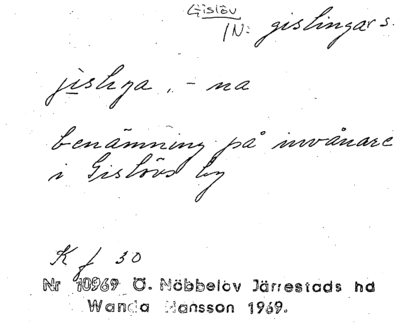 Gislöv
IN: gislingar s.
jisliga, -na
benämning på invånare
i Gislövs by
K f 30
Nr 10969 Ö. Nöbbelöv Järrestads hd
Wanda Hansson 1969.